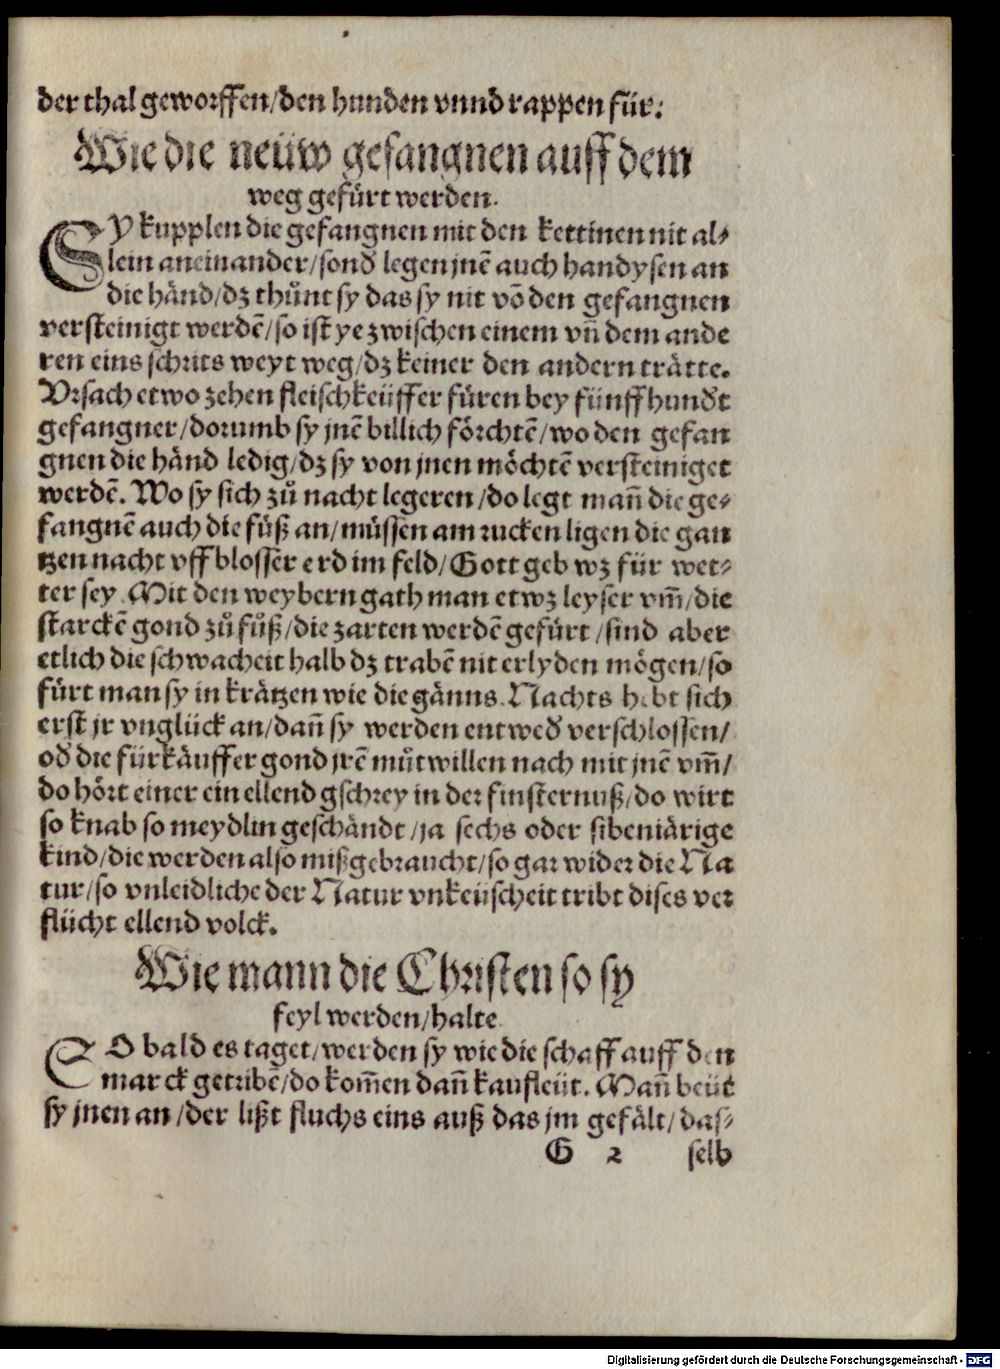 der thal geworffen/den hunden vnnd rappen für.
Wie die neüw gefangnen auff dem
weg gefürt werden.
SY kupplen die gefangnen mit den kettinen nit al⸗
lein aneinander/sonđ legen jnẽ auch handysen an
die händ/dz thůnt sy das sy nit võ den gefangnen
versteinigt werdẽ/so ist ye zwischen einem vñ dem ande
ren eins schrits weyt weg/dz keiner den andern trätte.
Vrsach etwo zehen fleischkeüffer füren bey fünffhundt
gefangner/dorumb sy jnẽ billich förchtẽ/wo den gefan
gnen die händ ledig/dz sy von jnen möchtẽ versteiniget
werdẽ. Wo sy sich zů nacht legeren/do legt mañ die ge⸗
fangnẽ auch die füß an/müssen am rucken ligen die gan
tzen nacht vff blosser erd im feld/Gott geb wz für wet⸗
ter sey. Mit den weybern gath man etwz leyser vm̃/die
starckẽ gond zů fůß/die zarten werdẽ gefürt/sind aber
etlich die schwacheit halb dz trabẽ nit erlyden mögen/so
fürt man sy in krätzen wie die gänns. Nachts hebt sich
erst jr vnglück an/dañ sy werden entweđ verschlossen/
ođ die fürkäuffer gond jrẽ můtwillen nach mit jnẽ vm̃/
do hört einer ein ellend gschrey in der finsternuß/do wirt
so knab so meydlin geschändt/ja sechs oder sibenjärige
kind/die werden also mißgebraucht/so gar wider die Na
tur/so vnleidliche der Natur vnkeüscheit tribt dises ver
flücht ellend volck.
Wie mann die Christen so sy
feyl werden/halte
SO bald es taget/werden sy wie die schaff auff den
marck getribẽ/do kom̃en dañ kaufleüt. Mañ beüt
sy jnen an/der lißt fluchs eins auß das jm gefält/das⸗
G 2 selb
Digitalisierung gefördert durch die Deutsche Forschungsgemeinschaft - DFG